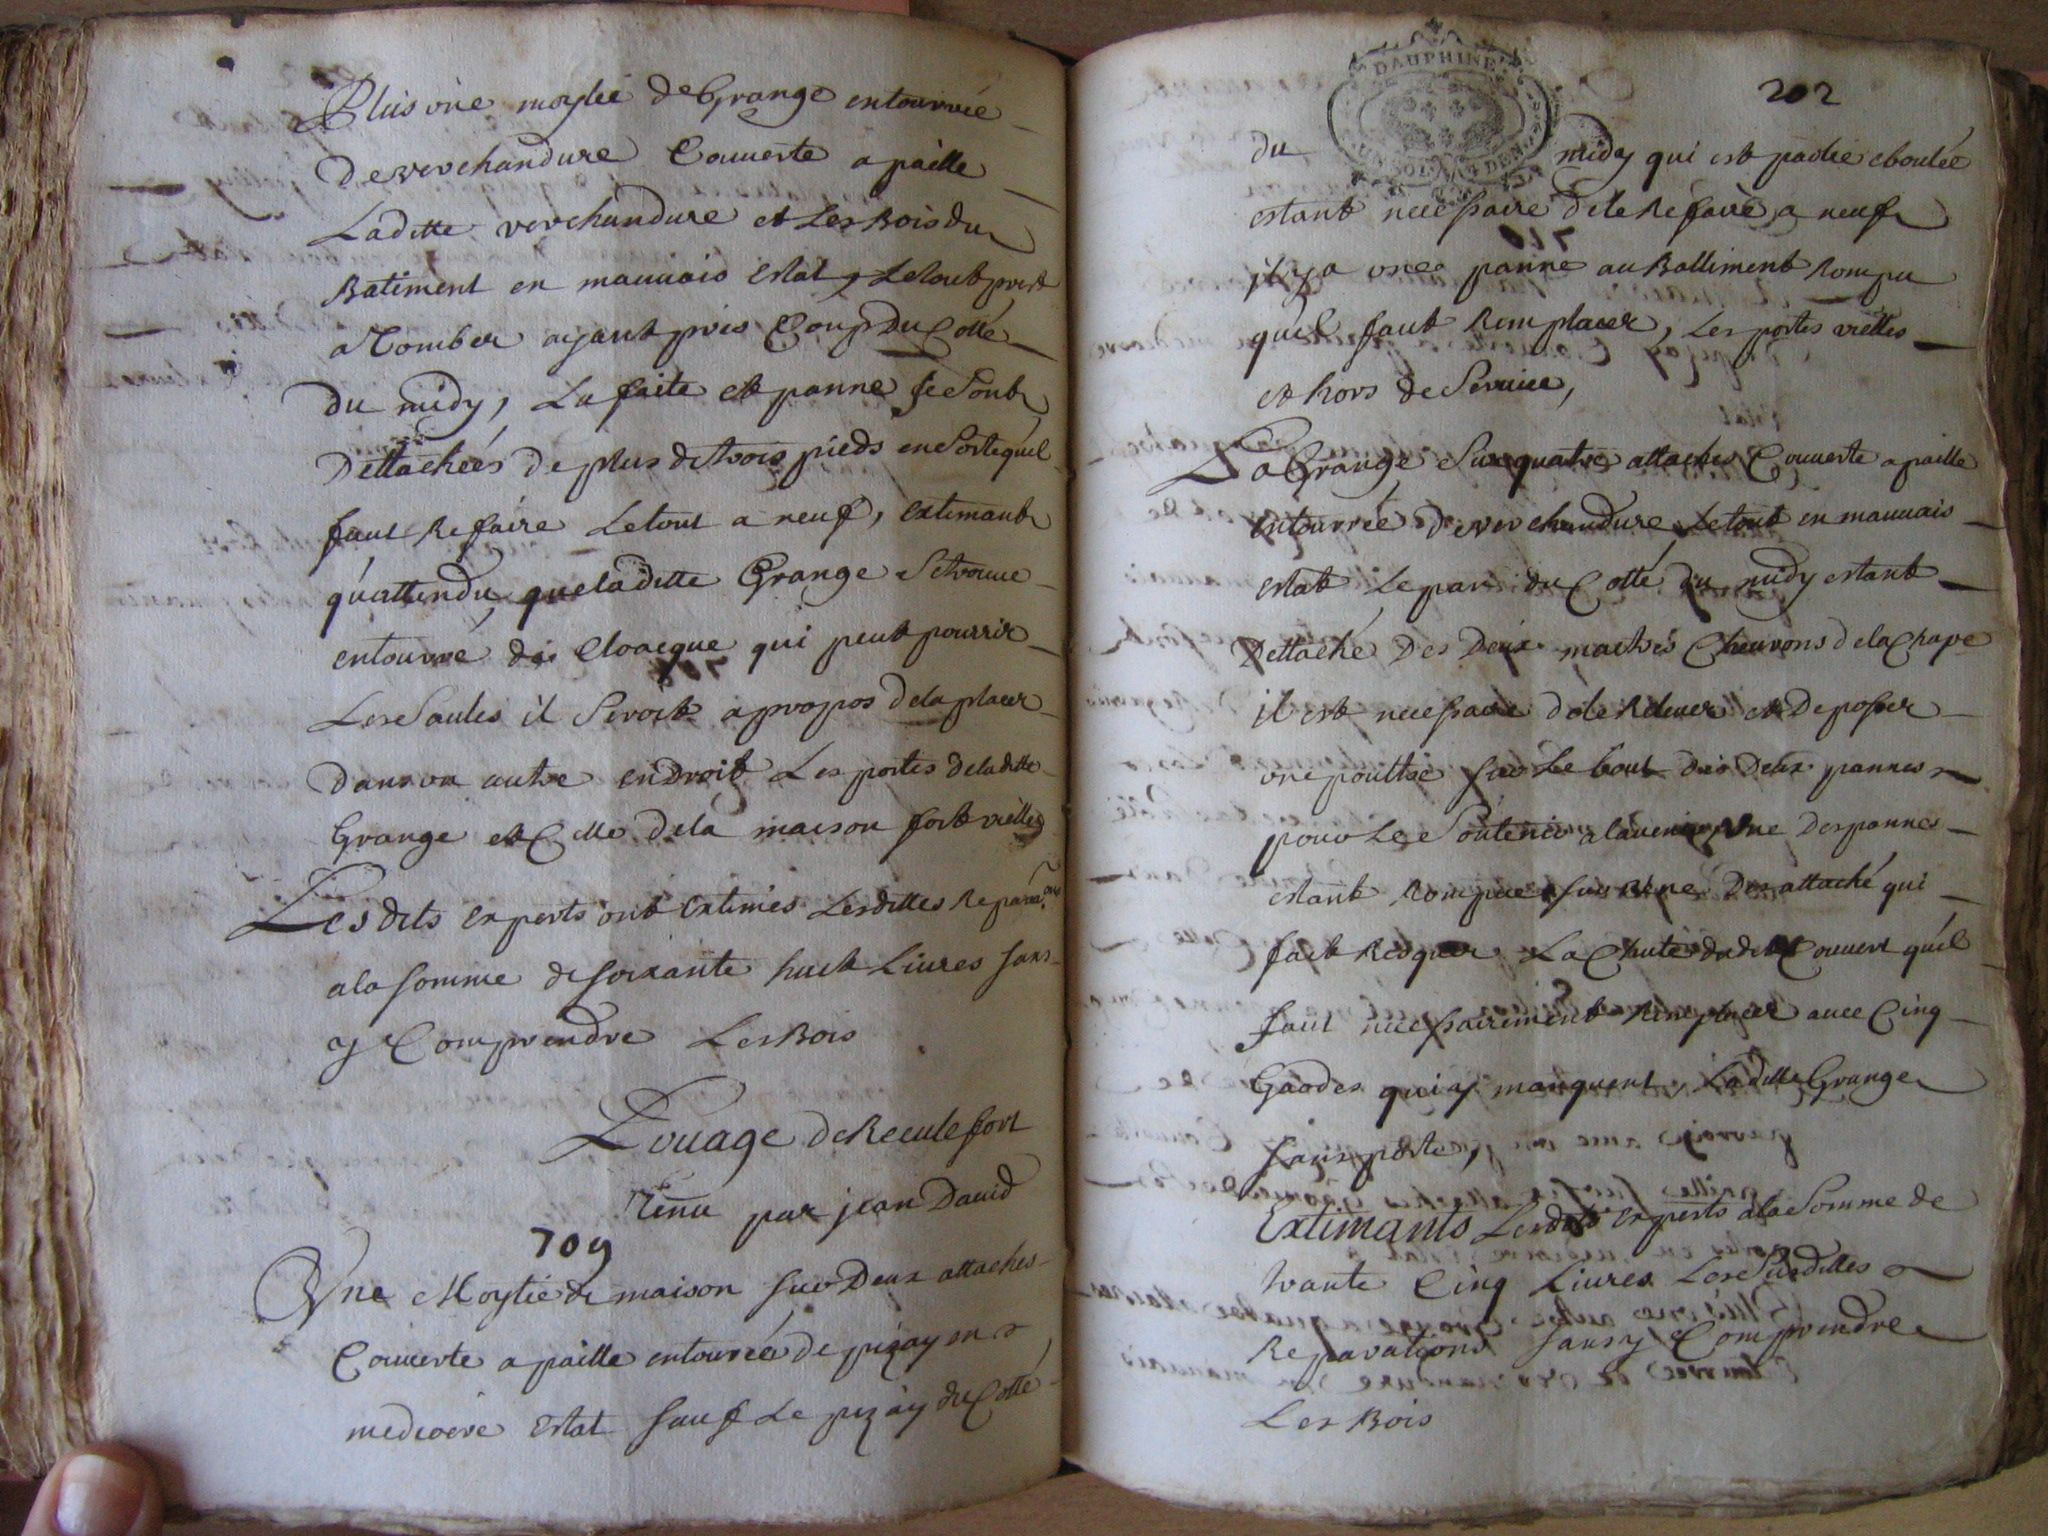 Plus une moytié de Grange entourrée
de verchandure Couuerte a paille
Laditte verchandure et Les Bois du
Batiment en mauuais estat, Le tout prest
a Tomber ayant pris Coup du Cotté
du midy, La faite et panne se sont
Dettachées de plus de trois pieds en sorte quil
faut Refaire Le tout a neuf, extimant
qu'attendu que laditte Grange se trouue
entourré des Cloacque qui peut pourrir
708
Les saules il seroit apropos de la placer
dans un autre endroit Les portes de laditte
Grange et Celle de la maison fort vielles
Lesdits experts ont extimés Lesdittes Reparaons
a la somme de soixante huit Liures sans
y Comprendre Les Bois
Louage de Reculefort
Tenu par jean Dauid
709
Une Moytié de maison sur Deux attaches
Couuerte a paille entourée de pizay en
mediocre estat sauf Le pizay du Cotté
202
DAUPHINE
du midy qui est partie eboulée
estant necessaire de le Refaire a neuf
710
il y a une panne au Battiment Rompu
quil faut Remplacer, Les portes vielles
et hors de Seruice,
La Grange sur quatre attaches Couuerte a paille
entourrée de verchandure Le tout en mauuais
estat Le pan du Cotté du midy estant
Dettaché Des Deux maitres Cheurons de la Chape
il est necessaire de le Releuer et De posser
une pouttre sur Le bout des Deux pannes
pour Le soutenir a lauenir une Des pannes
estant Rompue sur une Des attaché qui
fait Risquer La Chute dudit Couuert quil
faut necessairement Remplacer auec Cinq
Gaodes qui y manquent, Laditte Grange
sans porte,
Extimants Lesdits experts a la somme de
trante Cinq Liures Les susdittes
Reparations sans y Comprendre
Les Bois